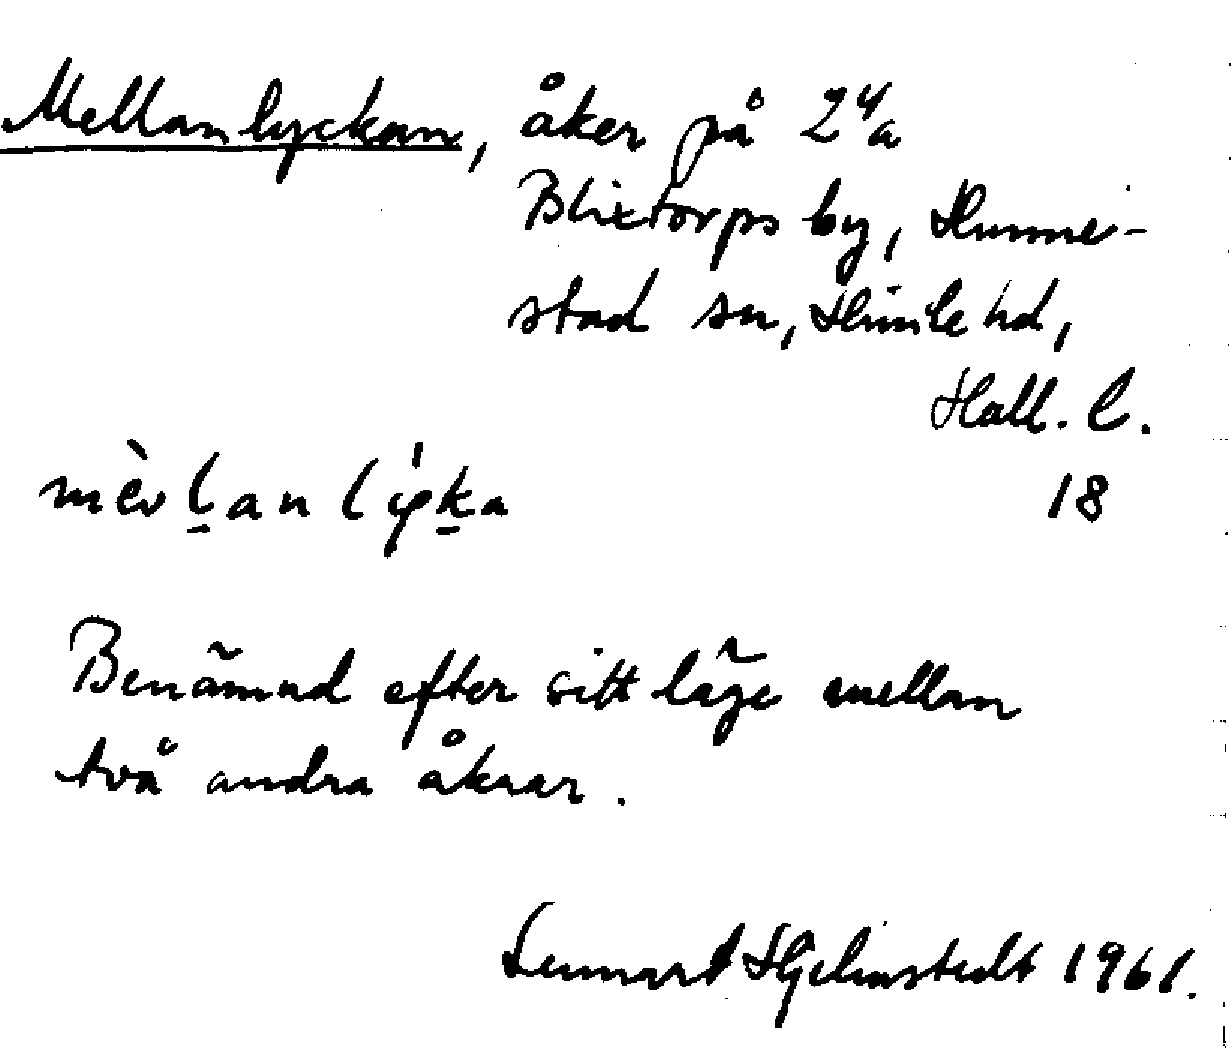 Mellanlyckan, åker på 2⁴a
Blixtorps by, Hunne-
stad sn, Himle hd,
Hall. l.
mèv l̠an l ẏk̠a 18
Benämnd efter sitt läge mellan
två andra åkrar.
Lennart Hjelmstedt 1961.